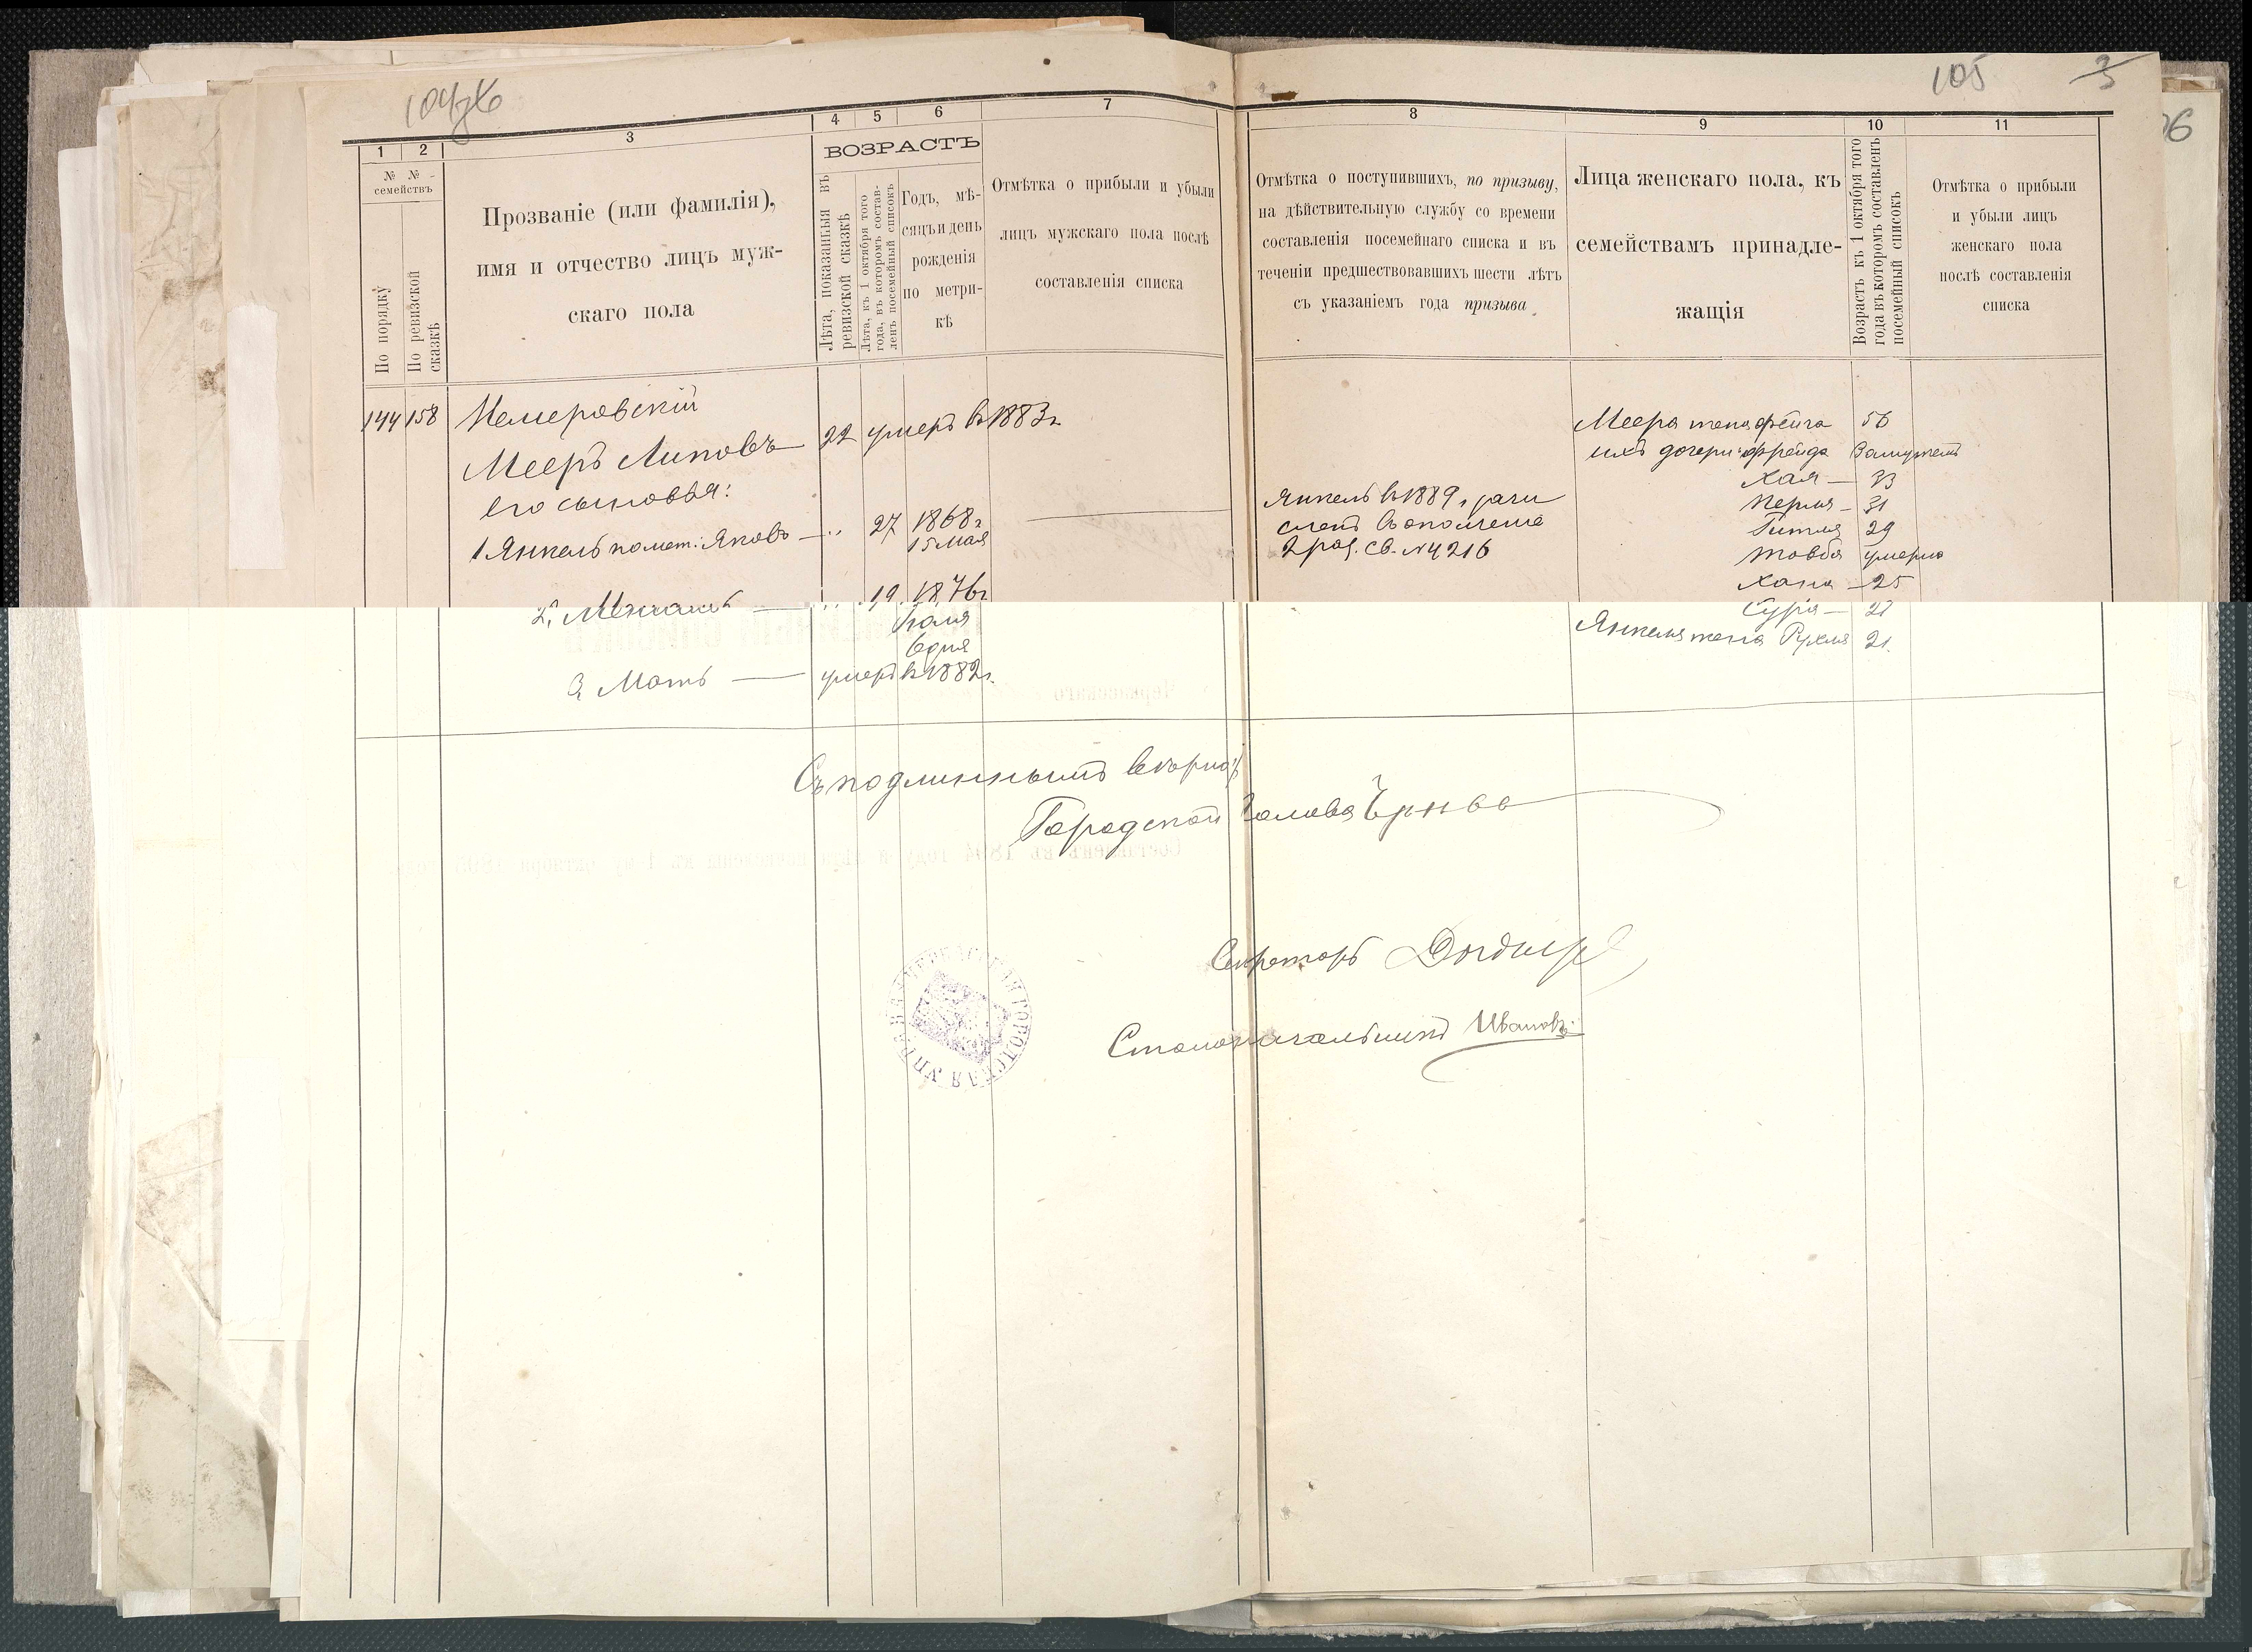 105
1
2
3
4
5
6
7
№ №
семействъ
По порядку
По ревизской
сказкѣ
Прозваніе (или фамилія),
имя и отчество лицъ муж-
скаго пола
ВОЗРАСТЪ
Лѣта, показанныя въ
ревизской сказкѣ
Лѣта, къ 1 октября того
года, въ которомъ состав-
ленъ посемейный списокъ
Годъ, мѣ-
сяцъ и день
рожденія
по метри-
кѣ
Отмѣтка о прибыли и убыли
лицъ мужскаго пола послѣ
составленія списка
144 158
Немеровскій
Мееръ Липовъ 22 умеръ въ 1883 г.
Его сыновья:
1 Янкель помет: Яковъ 27 1868 г.
15 мая
2, 19 1876 г.
Іюля
6 дня
3, Моть умеръ въ 1882 г.
8
9
10
11
Отмѣтка о поступившихъ, по призыву,
на дѣйствительную службу со времени
составленія посемейнаго списка и въ
теченіи предшествовавшихъ шести лѣтъ
съ указаніемъ года призыва.
Лица женскаго пола, къ
семействамъ принадле-
жащія
Возрастъ къ 1 октября того
года въ которомъ составленъ
посемейный списокъ
Отмѣтка о прибыли
и убыли лицъ
женскаго пола
послѣ составленія
списка
Янкель въ 1889 г. зачи
сленъ въ ополченіе
2 раз. св. № 4216
Меера жена Фейга 56
ихъ дочери: Фрейда Замужемъ
Хая 33
Перля 31
Гитля 29
Товба умерла
Хана 25
Сура
Янкеля жена Рухля 21.
Съ подлиннымъ вѣрно:
Городской Голова
Секретарь
Столоначальникъ Ивановъ
ЧЕРКАССКАЯ ГОРОДСКАЯ УПРАВА